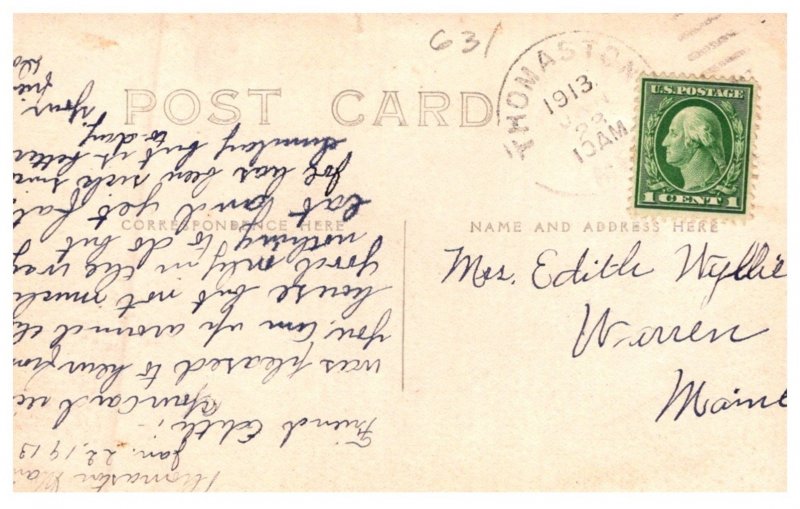 631
POST CARD
THOMASTON
1913
10 AM
U.S. POSTAGE
1 CENT 1
CORRESPONDENCE HERE
NAME AND ADDRESS HERE
Mrs. Edith Wyllie
Warren
Maine
Thomaston Mai
Jan. 22, 1913
Friend Edith:-
Your Card rec
was pleased to hear from
you, am up around the
house but not much
good only in the way
nothing to do but
eat and get fat
Joe has been sick since
sunday but is better
to day.
Your